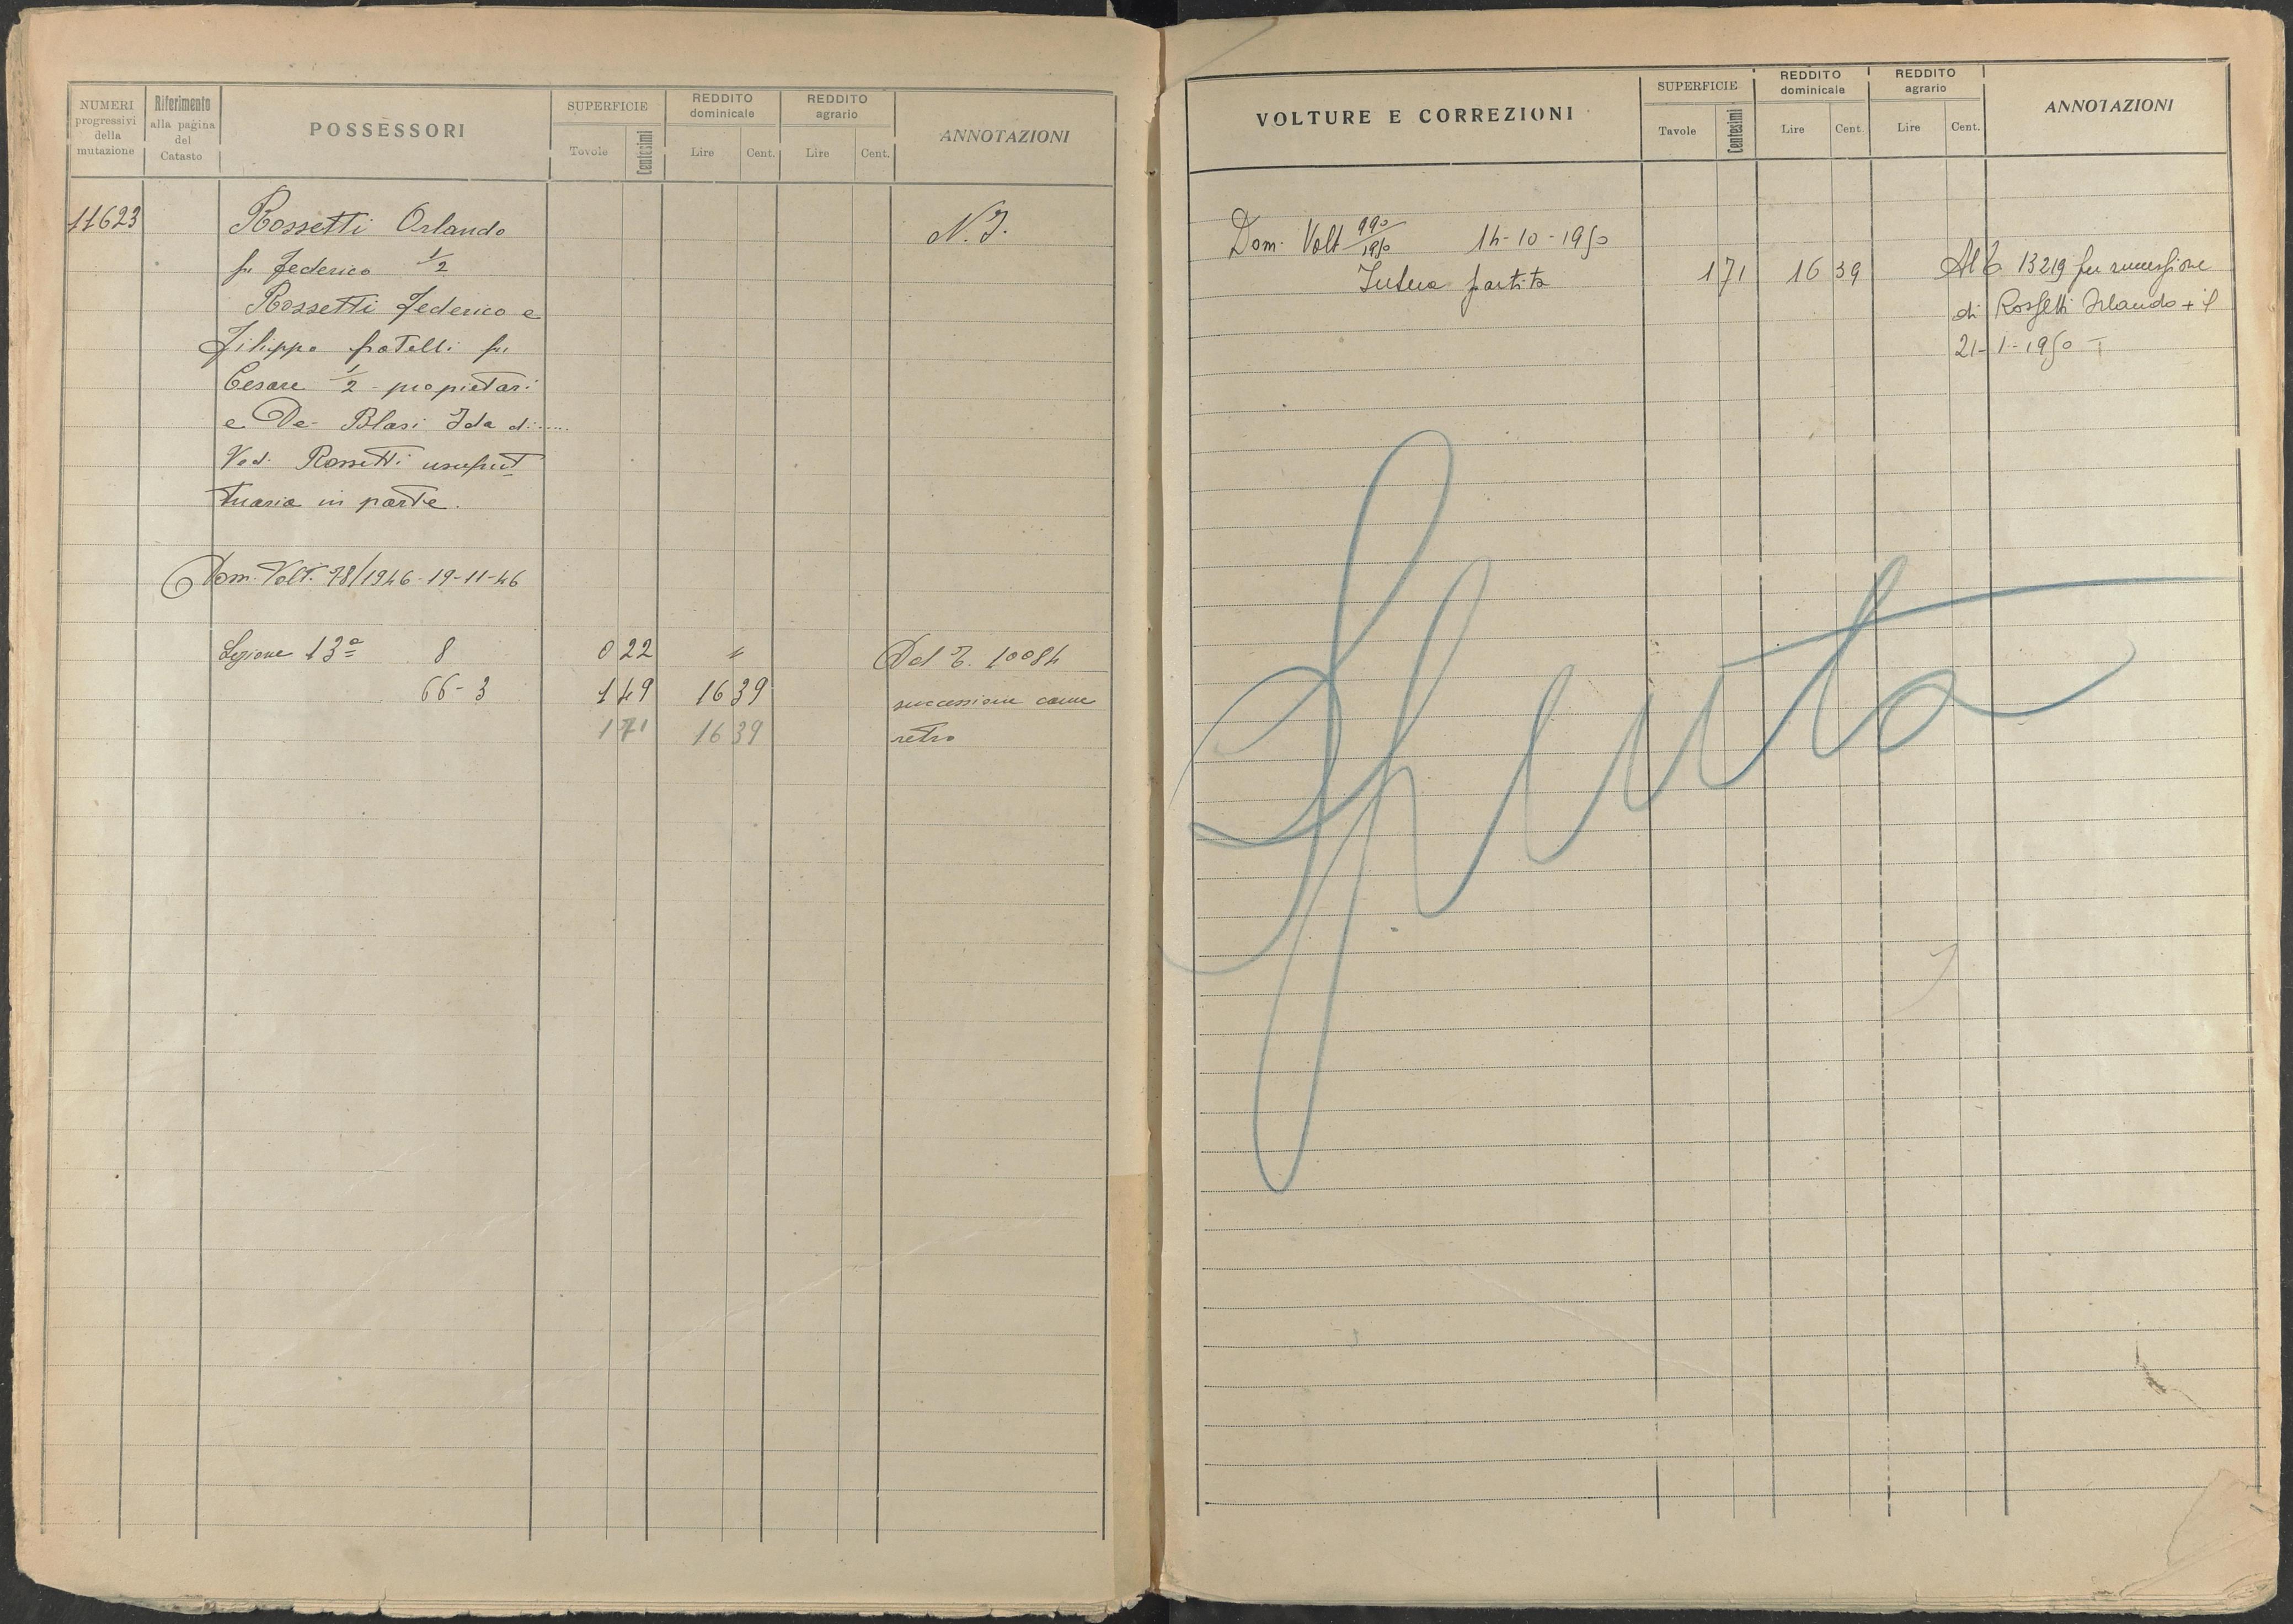 NUMERI progressivi della mutazione
Riferimento alla pagina del Catasto
POSSESSORI
SUPERFICIE
Tavole
Centesimi
REDDITO dominicale
Lire
Cent.
REDDITO agrario
Lire
Cent.
ANNOTAZIONI
11623
Rossetti Orlando
N.I.
fu Federico 1/2
Rossetti Federico e
Filippo fratelli fu
Cesare 1/2 - propietari
e De Blasi Ida di .....
Ved. Rossetti usufrut
tuaria in parte.
Dom. Volt. 78/1946 - 19-11-46
Sezione 13ª 8 0 22 " Dal T. 10084
66-3 1 49 16 39 successione come
1 71 16 39 retro
VOLTURE E CORREZIONI
SUPERFICIE
Tavole
Centesimi
REDDITO dominicale
Lire
Cent.
REDDITO agrario
Lire
Cent.
ANNOTAZIONI
Dom. Volt 990/1950 14-10-1950
Intera partita 1 71 16 39 Al T. 13219 per successione
di Rossetti Orlando + il
21-1-1950